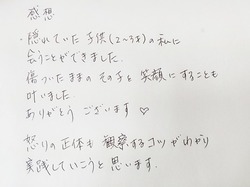 感想
・隠れていた子供（2〜3才）の私に
会うことができました。
傷ついたままのその子を笑顔にすることも
叶いました。
ありがとうございます♡
怒りの正体も観察するコツがわかり
実践していこうと思います。